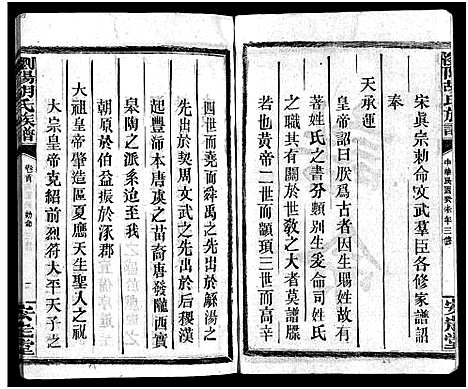 瀏陽胡氏族譜
中華民國癸未年三修
安定堂
宋眞宗勅命文武羣臣各修家譜詔
奉
天承運
皇帝詔曰朕爲古者因生賜姓故有
著姓氏之書分類別生爰命司姓氏
者杖其有關於世敎之大者莫譜牒
若也黃帝二世而顓頊三世而高辛
四世而堯而舜禹之先出於
湯之
先出於契周文武之先出於后稷漢
起豐沛本唐虞之苗裔唐發隴西實
皋陶之派系也我宋之
朝原於伯益振於涿郡
大祖皇帝肇造區夏應天生聖人之祝
大宗皇帝克紹前烈符太平天子之
瀏陽胡氏族譜
卷首
勅命
安定堂